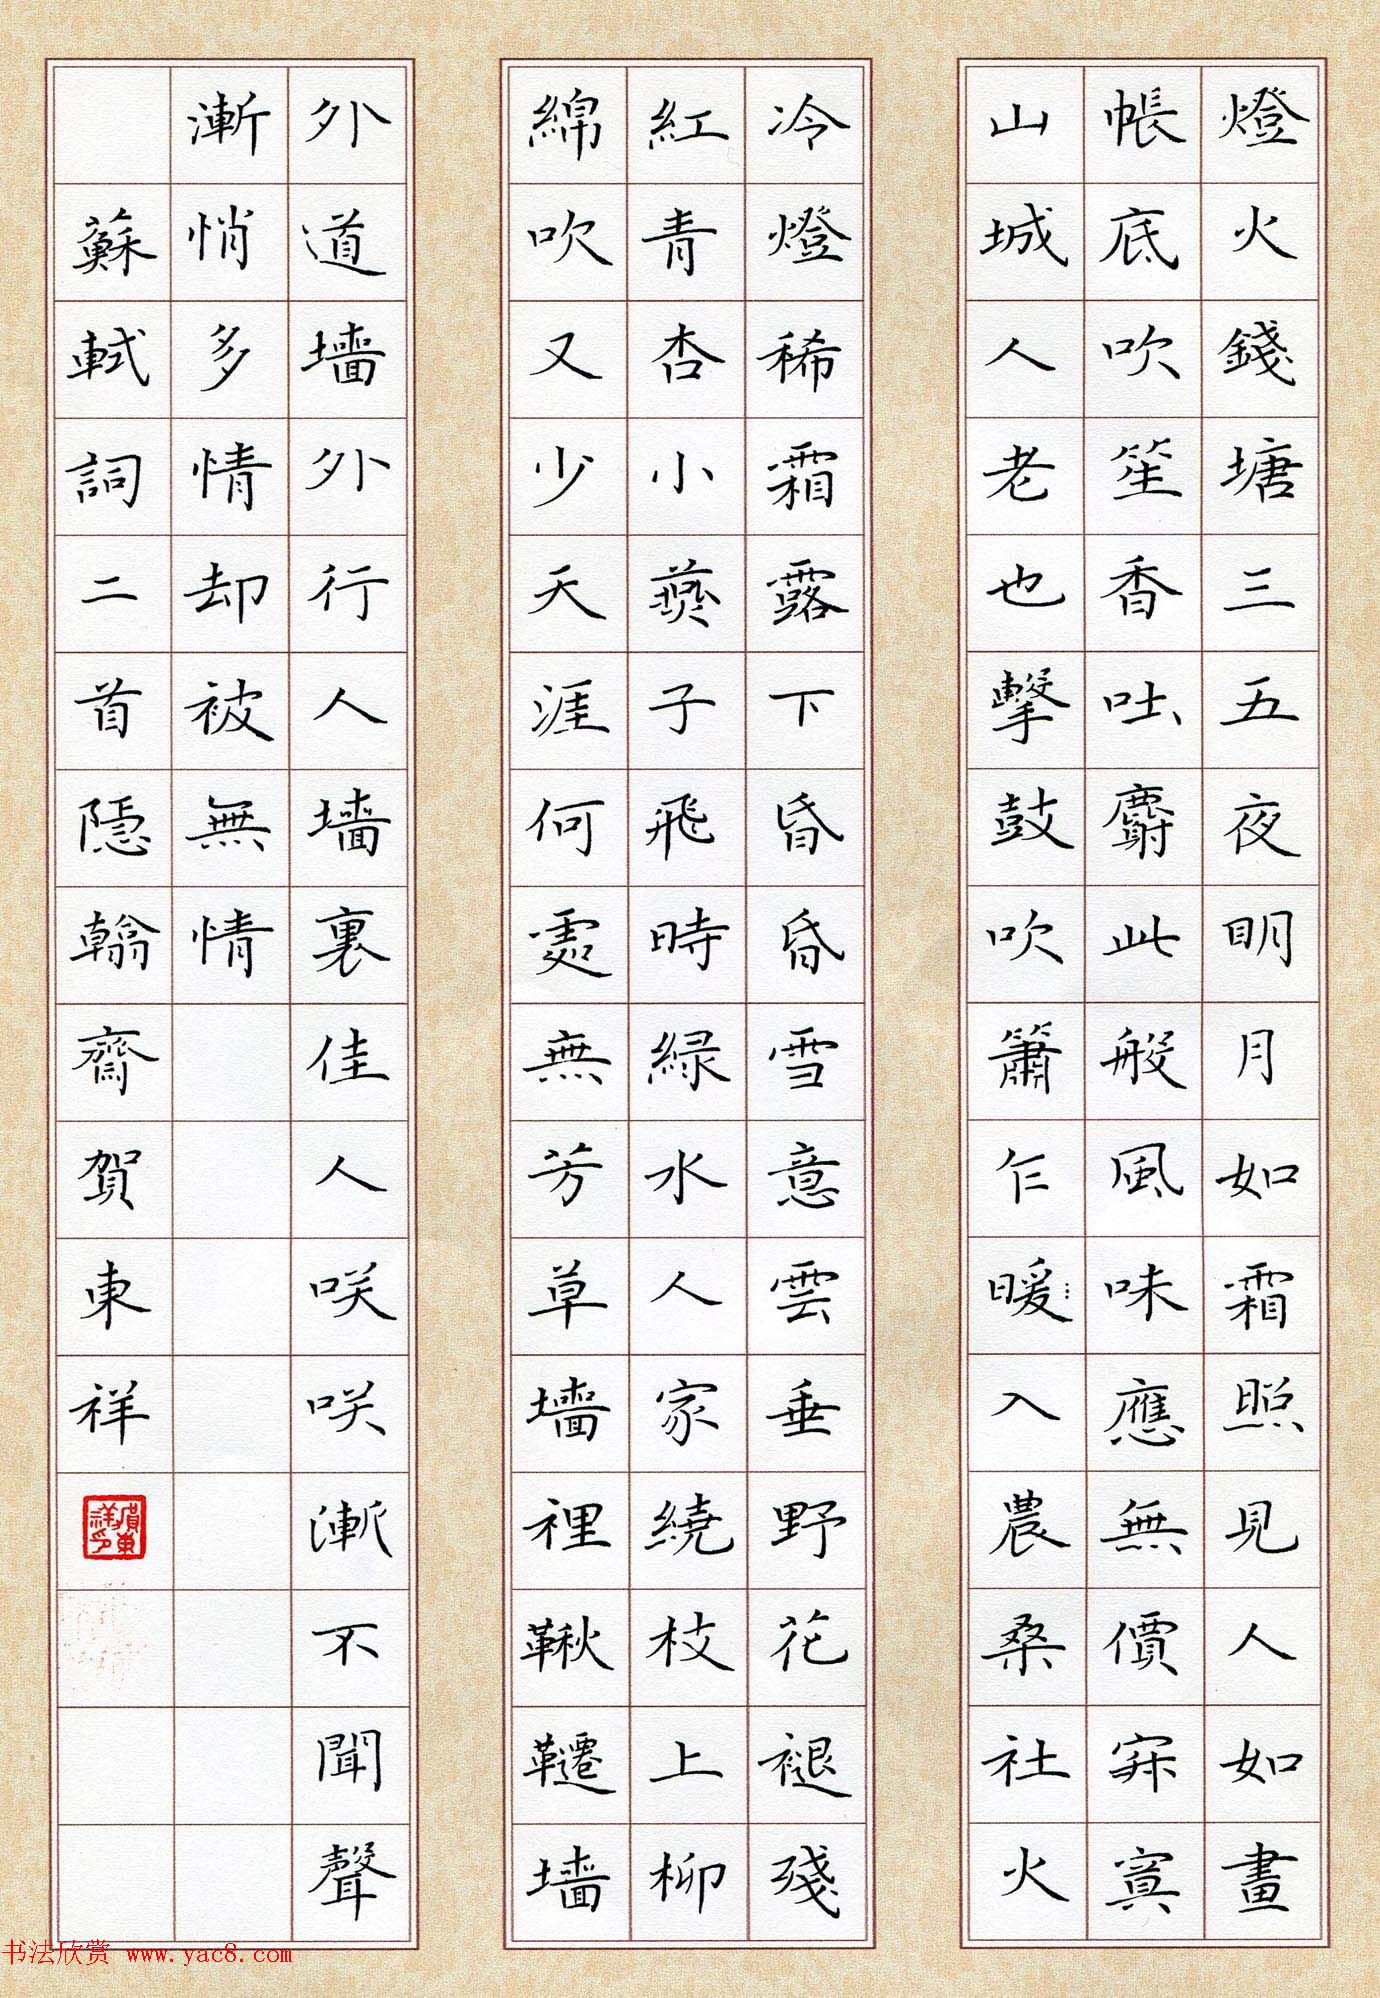 燈火錢塘三五夜明月如霜照見人如畫
帳底吹笙香吐麝此般風味應無價寂寞
山城人老也擊鼓吹簫乍暖入農桑社火
冷燈稀霜露下昏昏雪意雲垂野花褪殘
紅青杏小燕子飛時緑水人家繞枝上柳
綿吹又少天涯何處無芳草墻裡鞦韆墻
外道墻外行人墻裏佳人咲咲漸不聞聲
漸悄多情却被無情
蘇軾詞二首隱翰齋賀東祥
賀東祥印
书法欣赏 www.yac8.com